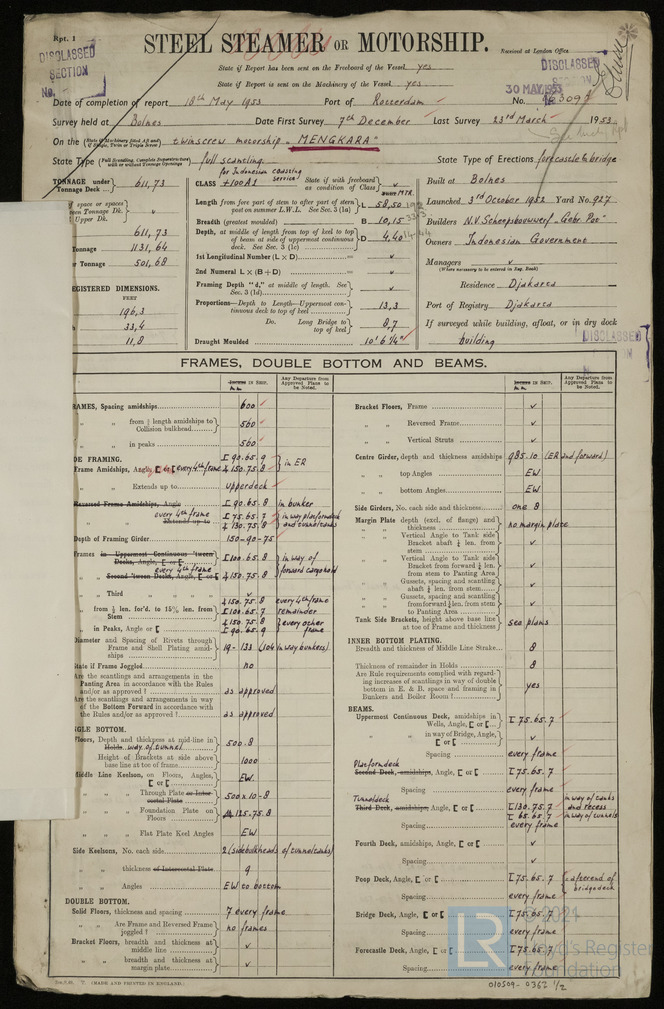 Rpt. 1
STEEL STEAMER OR MOTORSHIP.
Received at London Office
DISCLASSED
SECTION
No.
DISCLASSED
SECTION
30 MAY 1953
State if Report has been sent on the Freeboard of the Vessel yes
State if Report is sent on the Machinery of the Vessel yes
Date of completion of report 18th May 1953 Port of Rotterdam No.
Survey held at Bolnes Date First Survey 7th December Last Survey 23rd March 1953
On the (State if Machinery fitted Aft and if Single, Twin or Triple Screw) twinscrew motorship "MENGKARA"
State Type (Full Scantling, Complete Superstructure with or without Tonnage Openings) full scantling State Type of Erections forecastle & bridge
for Indonesian coasting service
TONNAGE under Tonnage Deck 611,73
611,73
Tonnage 1131,64
Tonnage 501,68
REGISTERED DIMENSIONS.
FEET
196,3
33,4
11,8
CLASS +100A1 State if with freeboard as condition of Class v
Length from fore part of stem to after part of stern post on summer L.W.L. See Sec. 3 (1a) L 58,50
Breadth (greatest moulded) B 10,15
Depth, at middle of length from top of keel to top of beam at side of uppermost continuous deck. See Sec. 3 (1c) D 4,40
1st Longitudinal Number (L × D) v
2nd Numeral L × (B + D) v
Framing Depth "d," at middle of length. See Sec. 3 (1d) v
Proportions—Depth to Length—Uppermost continuous deck to top of keel 13,3
Do. Long Bridge to top of keel 8,7
Draught Moulded 10' 6¼"
Built at Bolnes
Launched 3rd October 1952 Yard No. 927
Builders N.V. Scheepsbouwwerf "Gebr Pot"
Owners Indonesian Government
Managers v
(Where necessary to be entered in Reg. Book)
Residence Djakarta
Port of Registry Djakarta
If surveyed while building, afloat, or in dry dock
building
DISCLASSED
FRAMES, DOUBLE BOTTOM AND BEAMS.
Any Departure from Approved Plans to be Noted.
Any Departure from Approved Plans to be Noted.
FRAMES, Spacing amidships 600
" " from ⅕ length amidships to Collision bulkhead 560
" " in peaks 560
SIDE FRAMING.
Frame Amidships, Angle every 4th frame I 90.65.9 150.75.8 in ER
" Extends up to upperdeck
Reversed Frame Amidships, Angle I 90.65.8 in bunker
every 4th frame I 75.65.7 130.75.8 in way platformdeck and tunneltanks
Extends up to
Depth of Framing Girder 150-90-75
Frames in Uppermost Continuous 'tween Decks, Angle I 100.65.8 in way of
every 4th frame
" Second 'tween Decks, Angle 150.75.8 forward cargohold
" Third " v
" from ⅕ len. for'd. to 15% len. from Stem 150.75.8 every 4th frame I 100.65.7 remainder
" in Peaks, Angle or 150.75.8 I 90.65.9 every other frame
Diameter and Spacing of Rivets through Frame and Shell Plating amidships 19-133 (104 in way bunkers)
State if Frame Joggled no
Are the scantlings and arrangements in the Panting Area in accordance with the Rules and/or as approved? as approved
Are the scantlings and arrangements in way of the Bottom Forward in accordance with the Rules and/or as approved? as approved
SINGLE BOTTOM.
Floors, Depth and thickness at mid-line in Holds way of tunnel 500.8
Height of Brackets at side above base line at toe of frame 1000
Middle Line Keelson, on Floors, Angles, EW.
" " Through Plate or Intercostal Plate 500 x 10-8
" " Foundation Plate on Floors 125.75.8
" " Flat Plate Keel Angles EW
Side Keelsons, No. each side 2 (sidebulkheads of tunneltanks)
" " thickness of Intercostal Plate 9
" " Angles EW to bottom
DOUBLE BOTTOM.
Solid Floors, thickness and spacing 7 every frame
" " Are Frame and Reversed Frame joggled? no frames
Bracket Floors, breadth and thickness at middle line v
" " breadth and thickness at margin plate v
Bracket Floors, Frame v
" " Reversed Frame v
" " Vertical Struts v
Centre Girder, depth and thickness amidships 985.10 (ER and forward)
" " top Angles EW
" " bottom Angles EW
Side Girders, No. each side and thickness one 8
Margin Plate depth (excl. of flange) and thickness no margin plate
" " Vertical Angle to Tank side Bracket abaft ¼ len. from stem v
" " Vertical Angle to Tank side Bracket forward ¼ len. from stem to Panting Area v
" " Gussets, spacing and scantling abaft ¼ len. from stem v
" " Gussets, spacing and scantling forward ¼ len. from stem to Panting Area v
Tank Side Brackets, height above base line at toe of Frame and thickness see plans
INNER BOTTOM PLATING.
Breadth and thickness of Middle Line Strake 8
Thickness of remainder in Holds 8
Are Rule requirements complied with regarding increases of scantlings in way of double bottom in E. & B. space and framing in Bunkers and Boiler Room? yes
BEAMS.
Uppermost Continuous Deck, amidships in Wells, Angle, I 75.65.7
" " in way of Bridge, Angle, v
Spacing every frame
Platformdeck
Second Deck, amidships, Angle, I 75.65.7
Spacing every frame
Tunneldeck
Third Deck, amidships, Angle, I 130.75.7 in way of tanks and recess
I 65.65.7 in way of tunnels
Spacing every frame
Fourth Deck, amidships, Angle, v
Spacing v
Poop Deck, Angle, I 75.65.7 aft end of bridgedeck
Spacing every frame
Bridge Deck, Angle, I 75.65.7
Spacing every frame
Forecastle Deck, Angle, I 75.65.7
Spacing every frame
(MADE AND PRINTED IN ENGLAND.)
LR
© 2021
Lloyd's Register
Foundation
010509-0362 1/2